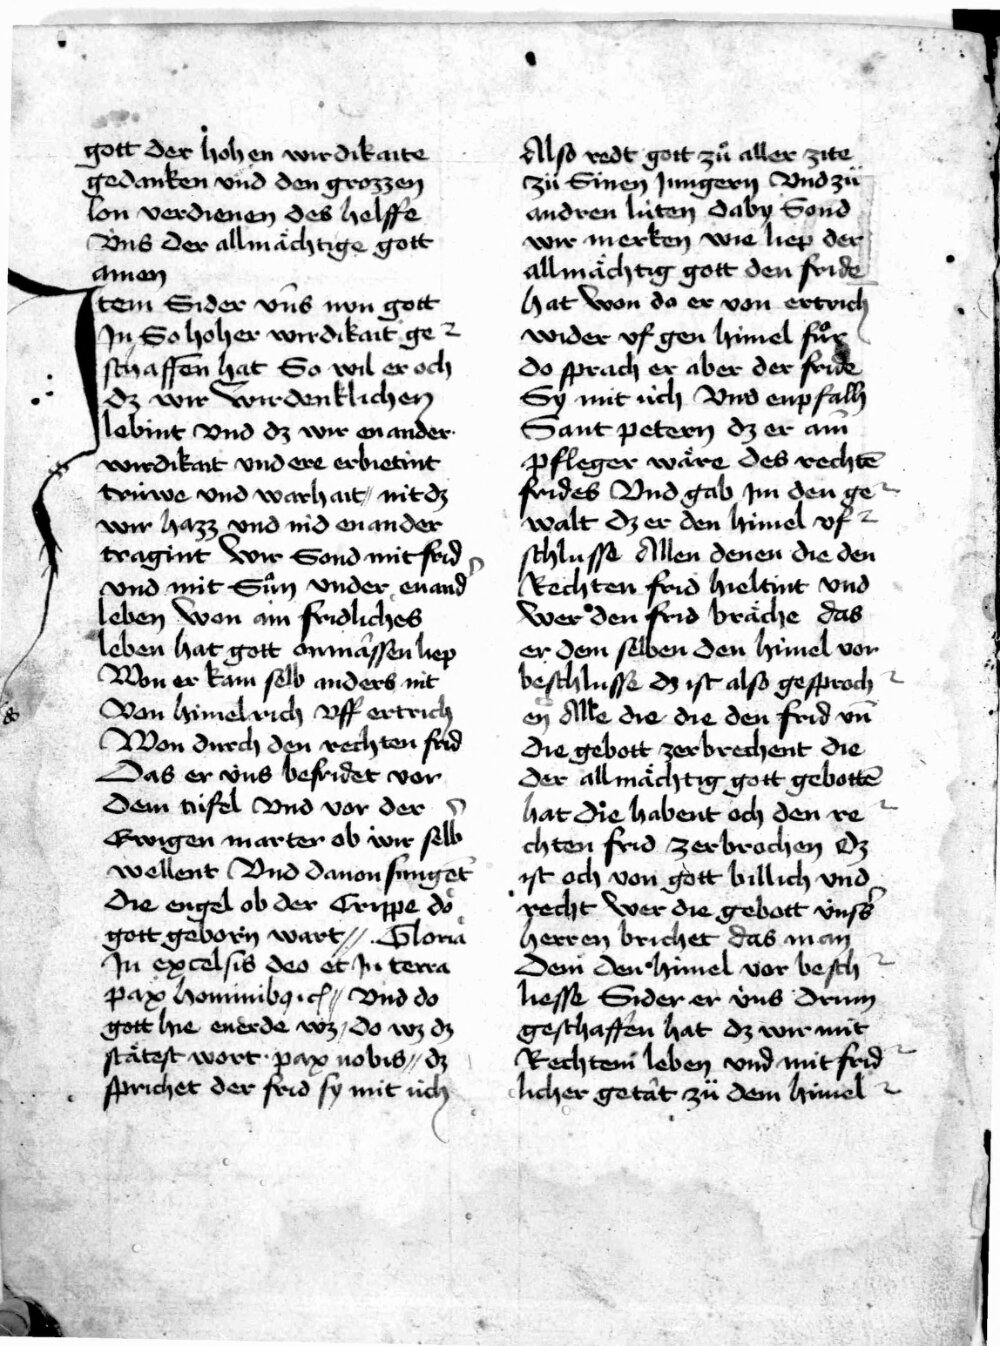 gott der hohen wirdikaite
gedanken vnd den grozzen
lon verdienen des helffe
Vns der allmächtige gott
amen
Item Sider vns nvn gott
In So hoher wirdikait ge
schaffen hat So wil er och
dz wir wirdenklichen
lebint Vnd dz wir en ander
wirdikait vnd ere erbietint
trüwe vnd warhait // nit dz
wir hazz vnd nid en ander
tragint Wir Sond mit frid
vnd mit Sůn vnder en and
leben Won ain fridliches
leben hat gott onmässen liep
Won er kam selb anders nit
Von himelrich Vff ertrich
Won durch den rechten frid
Das er v́ns befridet vor
dem tüfel Vnd vor der
Ewigen marter ob wir selb
wellent Vnd dauon sungēt
die engel ob der Crippe do
gott geborn wart // Gloria
In excelsis deo et In terra
pax hominibꝫ // Vnd do
gott hie en erde wz / do wz dz
stätest wort pax nobis // dz
sprichet der frid sy mit üch
Also redt gott zů aller zite
zü Sinen Jungern Vnd zü
andren lüten daby Sond
wir merken wie liep der
allmächtig gott den fride
hat Won do er von ertrich
wider vf gen himel fůr
do sprach er aber der fride
Sy mit üch Vnd enpfalh
Sant petern dz er ain
pfleger wäre des rechtē
frides Vnd gab Im den ge
walt dz er den himel vf
schlusse Allen denen die den
Rechten frid hieltint vnd
wer den frid bräche das
er dem selben den himel vor
beschlusse dz ist also gesproch
en Alle die die den frid vn̄
die gebott zerbrechent die
der allmächtig gott gebottē
hat die habent och den re
chten frid zerbrochen dz
ist och von gott billich vnd
recht wer die gebott v́nss
herren brichet das man
Dem den himel vor besch
liesse Sider er v́ns drum
geschaffen hat dz wir mit
Rechtem leben vnd mit frid
licher getät zü dem himel